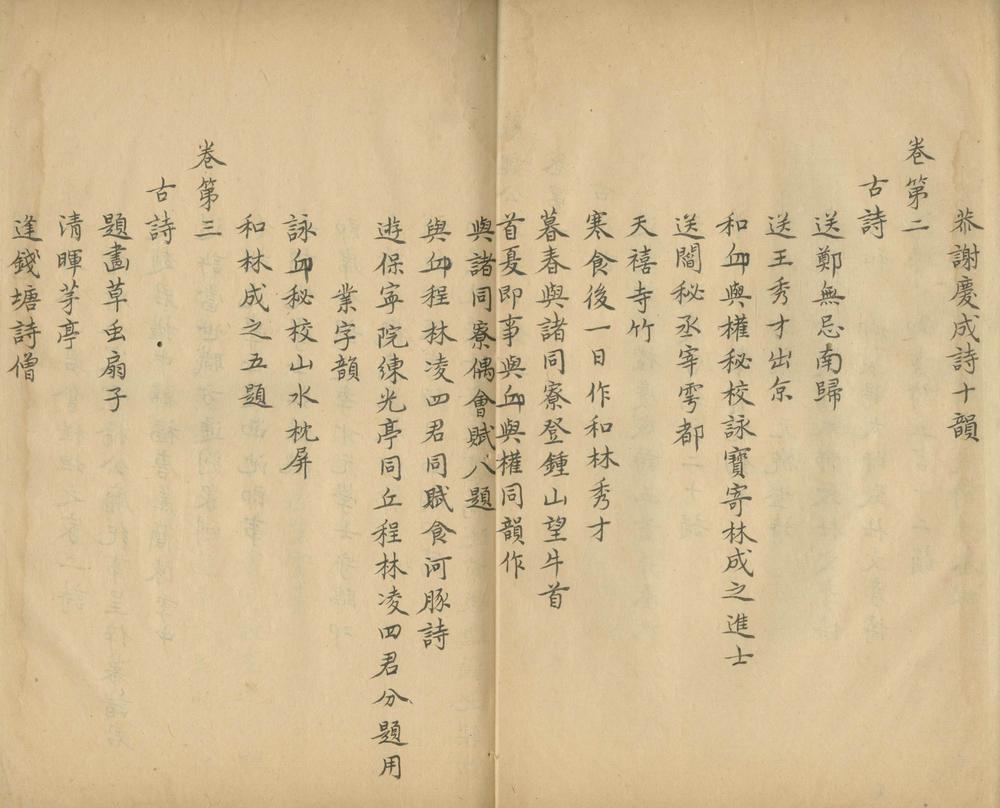 恭謝慶成詩十韻
卷第二
古詩
送鄭無忌南歸
送王秀才出京
和丘與權秘校詠寶寄林成之進士
送閻秘丞宰雩都
天禧寺竹
寒食後一日作和林秀才
暮春與諸同寮登鍾山望牛首
首夏即事與丘與權同韻作
與諸同寮偶會賦八題
與丘程林凌四君同賦食河豚詩
遊保寧院練光亭同丘程林凌四君分題用
業字韻
詠丘秘校山水枕屏
和林成之五題
卷第三
古詩
題畫草虫扇子
清暉茅亭
逢錢塘詩僧